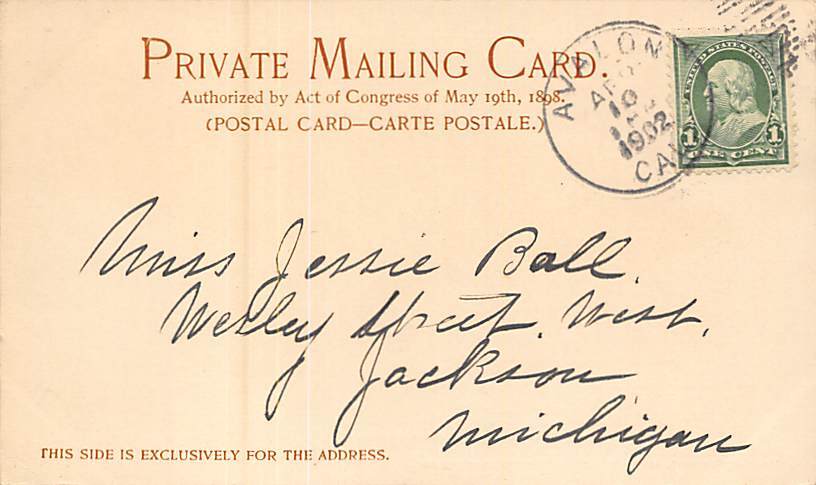 PRIVATE MAILING CARD.
Authorized by Act of Congress of May 19th, 1898.
(POSTAL CARD—CARTE POSTALE.)
AVALON
10
1902
CAL
UNITED STATES POSTAGE
1 1
ONE CENT
Miss Jessie Ball.
Wesley Street. West.
Jackson
Michigan
THIS SIDE IS EXCLUSIVELY FOR THE ADDRESS.